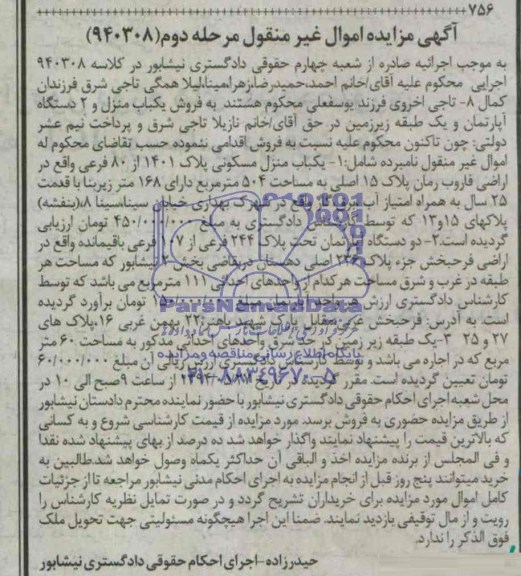 ۷۵۶
آگهی مزایده اموال غیر منقول مرحله دوم(۹۴۰۳۰۸)
به موجب اجرائیه صادره از شعبه چهارم حقوقی دادگستری نیشابور در کلاسه ۹۴۰۳۰۸
اجرایی محکوم علیه آقای/خانم احمد،حمیدرضا،زهرا،مینا،لیلا همگی تاجی شرق فرزندان
کمال ۸- تاجی اخروی فرزند یوسفعلی محکوم هستند به فروش یکباب منزل و ۲ دستگاه
آپارتمان و یک طبقه زیرزمین در حق آقای/خانم نازیلا تاجی شرق و پرداخت نیم عشر
دولتی: چون تاکنون محکوم علیه نسبت به فروش اقدامی ننموده حسب تقاضای محکوم له
اموال غیر منقول نامبرده شامل:۱- یکباب منزل مسکونی پلاک ۱۴۰۱ از ۸۰ فرعی واقع در
اراضی قاروب رمان پلاک ۱۵ اصلی به مساحت ۵۰۴ مترمربع دارای ۱۶۸ متر زیربنا با قدمت
۲۵ سال به همراه امتیاز آب واقع در شهرک بهداری خیابان سینا،سینا ۸،(بنفشه)
پلاکهای ۱۵و۱۳ که توسط کارشناس دادگستری به مبلغ ۴۵۰/۰۰۰/۰۰۰ تومان ارزیابی
گردیده است.۲- دو دستگاه آپارتمان تحت پلاک ۲۴۴ فرعی از ۱۰۷ فرعی باقیمانده واقع در
اراضی فرحبخش جزء پلاک ۲۳۲ اصلی دهستان دربقاضی بخش ۲ نیشابور که مساحت هر
طبقه در غرب و شرق مساحت هر کدام از واحدهای احداثی ۱۱۱ مترمربع می باشد که توسط
کارشناس دادگستری ارزش هر واحد آپارتمان مبلغ تومان برآورد گردیده
است. به آدرس: فرحبخش غربی مقابل پارک غربی ۱۶،پلاک های
۲۷ و ۲۵ ۳-یک طبقه زیر زمین در حد شرق واحدهای احداثی مذکور به مساحت ۶۰ متر
مربع که در اجاره می باشد و توسط کارشناس دادگستری ارزش ریالی آن مبلغ ۶۰/۰۰۰/۰۰۰
تومان تعیین گردیده است. مقرر گردیده در تاریخ از ساعت ۹صبح الی ۱۰ در
محل شعبه اجرای احکام حقوقی دادگستری نیشابور با حضور نماینده محترم دادستان نیشابور
از طریق مزایده حضوری به فروش برسد. مورد مزایده از قیمت کارشناسی شروع و به کسانی
که بالاترین قیمت را پیشنهاد نمایند واگذار خواهد شد ده درصد از بهای پیشنهاد شده نقدا
و فی المجلس از برنده مزایده اخذ و الباقی آن حداکثر یکماه وصول خواهد شد.طالبین به
خرید میتوانند پنج روز قبل از انجام مزایده به اجرای احکام مدنی نیشابور مراجعه تا از جزئیات
کامل اموال مورد مزایده برای خریداران تشریح گردد و در صورت تمایل نظریه کارشناس را
رویت و از مال توقیفی بازدید نمایند. ضمنا این اجرا هیچگونه مسئولیتی جهت تحویل ملک
فوق الذکر را ندارد.
حیدرزاده-اجرای احکام حقوقی دادگستری نیشابور
ParsNamadData
پایگاه اطلاع رسانی مناقصه و مزایده
۰۲۱-۸۸۳۴۹۶۷۰-۵